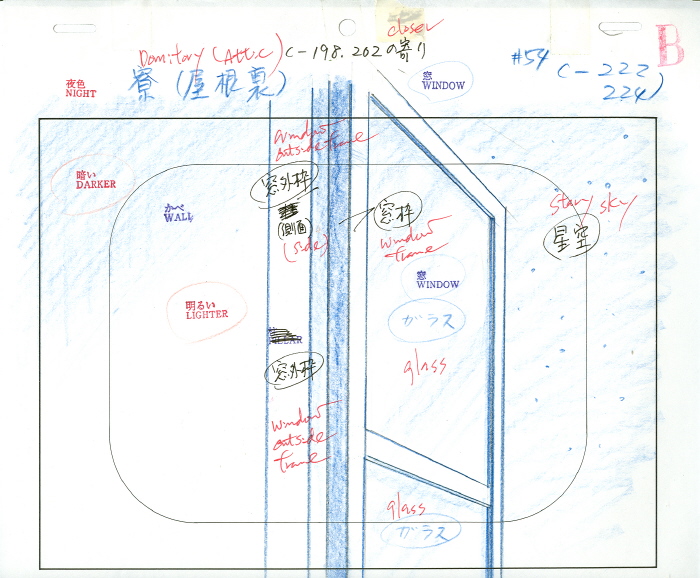 closer
Domitory (Attic) C-198.202の寄り
#54
B
夜色
NIGHT
寮(屋根裏)
窓
WINDOW
C-222
224)
window
outside frame
暗い
DARKER
窓外枠
かべ
WALL
(側面)
(side)
窓枠
window
frame
Starry sky
星空
窓
WINDOW
明るい
LIGHTER
ガラス
glass
窓外枠
window
outside
frame
glass
ガラス